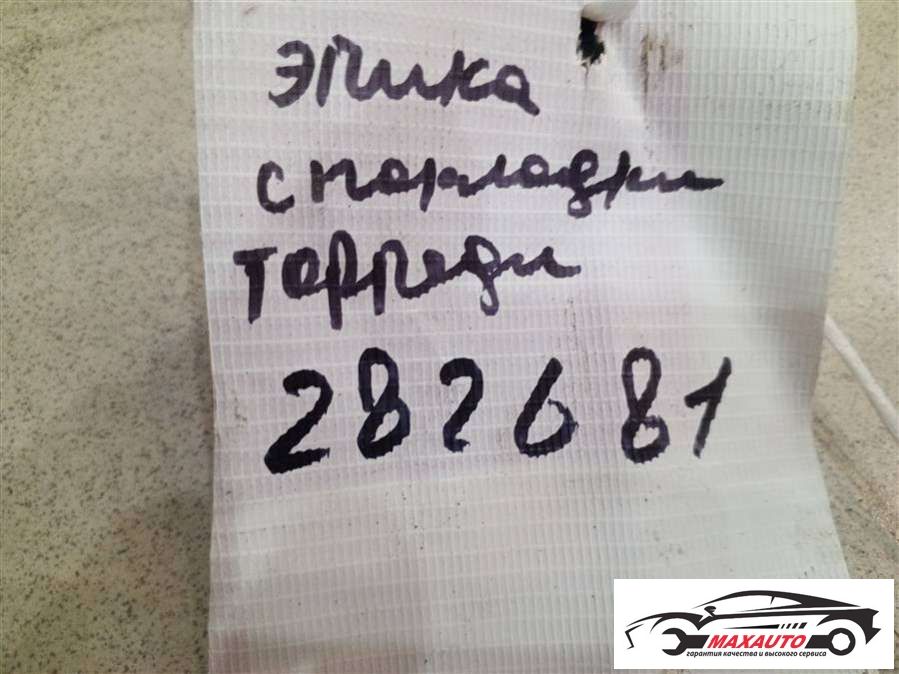 эпика
с накладки
торпеди
282681
MAXAUTO
гарантия качества и высокого сервиса